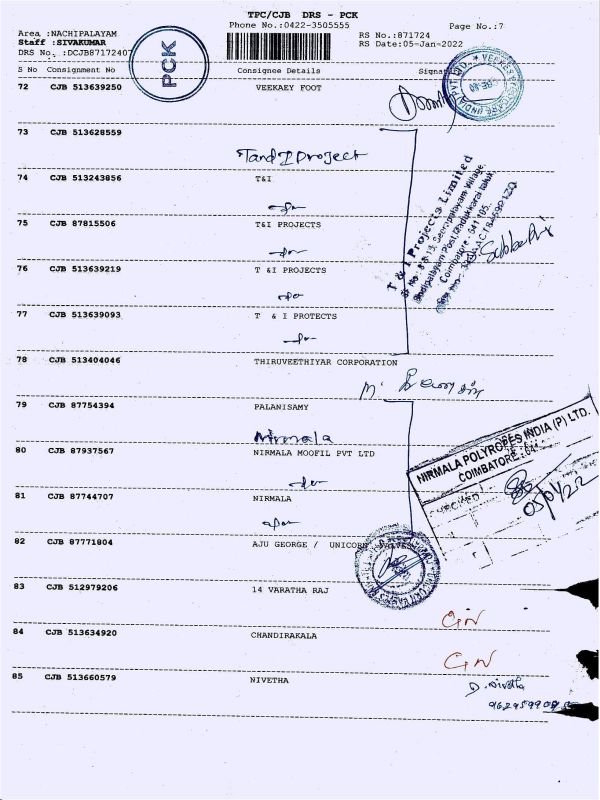 TPC/CJB DRS - PCK
Phone No.:0422-3505555
Page No.:7
Area :NACHIPALAYAM
RS No.:871724
Staff :SIVAKUMAR
RS Date:05-Jan-2022
DRS No. :DCJB87172407
PCK
S No Consignment No Consignee Details Signat
72 CJB 513639250 VEEKAEY FOOT
73 CJB 513628559
Tand I Project
74 CJB 513243856 T&I
75 CJB 87815506 T&I PROJECTS
76 CJB 513639219 T &I PROJECTS
77 CJB 513639093 T & I PROTECTS
T & I Projects Limited
Coimbatore - 641 105.
78 CJB 513404046 THIRUVEETHIYAR CORPORATION
79 CJB 87754394 PALANISAMY
Nirmala
80 CJB 87937567 NIRMALA MOOFIL PVT LTD
81 CJB 87744707 NIRMALA
NIRMALA POLYROPES INDIA (P) LTD.
COIMBATORE - 641
05/01/22
82 CJB 87771804 AJU GEORGE / UNICORN
83 CJB 512979206 14 VARATHA RAJ
84 CJB 513634920 CHANDIRAKALA
85 CJB 513660579 NIVETHA
D. Nivetha